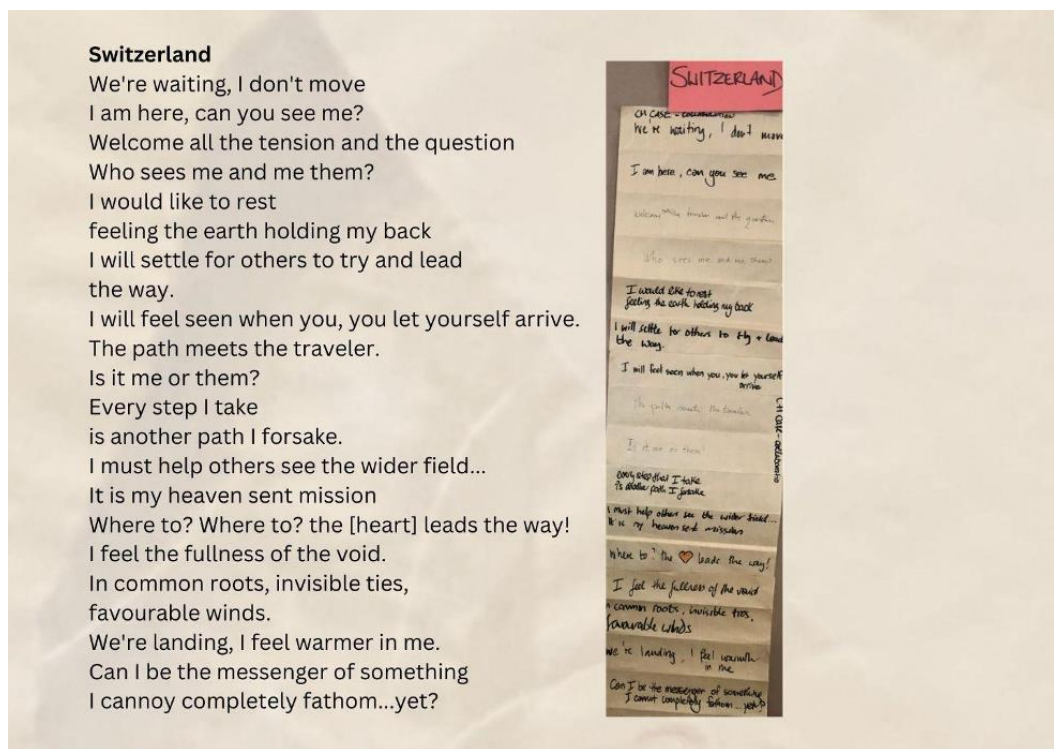 Switzerland
We're waiting, I don't move
I am here, can you see me?
Welcome all the tension and the question
Who sees me and me them?
I would like to rest
feeling the earth holding my back
I will settle for others to try and lead
the way.
I will feel seen when you, you let yourself arrive.
The path meets the traveler.
Is it me or them?
Every step I take
is another path I forsake.
I must help others see the wider field...
It is my heaven sent mission
Where to? Where to? the [heart] leads the way!
I feel the fullness of the void.
In common roots, invisible ties,
favourable winds.
We're landing, I feel warmer in me.
Can I be the messenger of something
I cannoy completely fathom...yet?
SWITZERLAND
CH CASE -
We're waiting, I don't move
I am here, can you see me
Welcome all the tension and the question
Who sees me and me them?
I would like to rest
feeling the earth holding my back
I will settle for others to try + lead
the way.
I will feel seen when you, you let yourself
arrive
The path meets the traveler
Is it me or them?
every step that I take
is another path I forsake
I must help others see the wider field...
It is my heaven sent mission
Where to? the 🧡 leads the way!
I feel the fullness of the void
n common roots, invisible ties,
favourable winds
We're landing, I feel warmth
in me
Can I be the messenger of something
I cannot completely fathom... yet?
CH CASE - collaborate